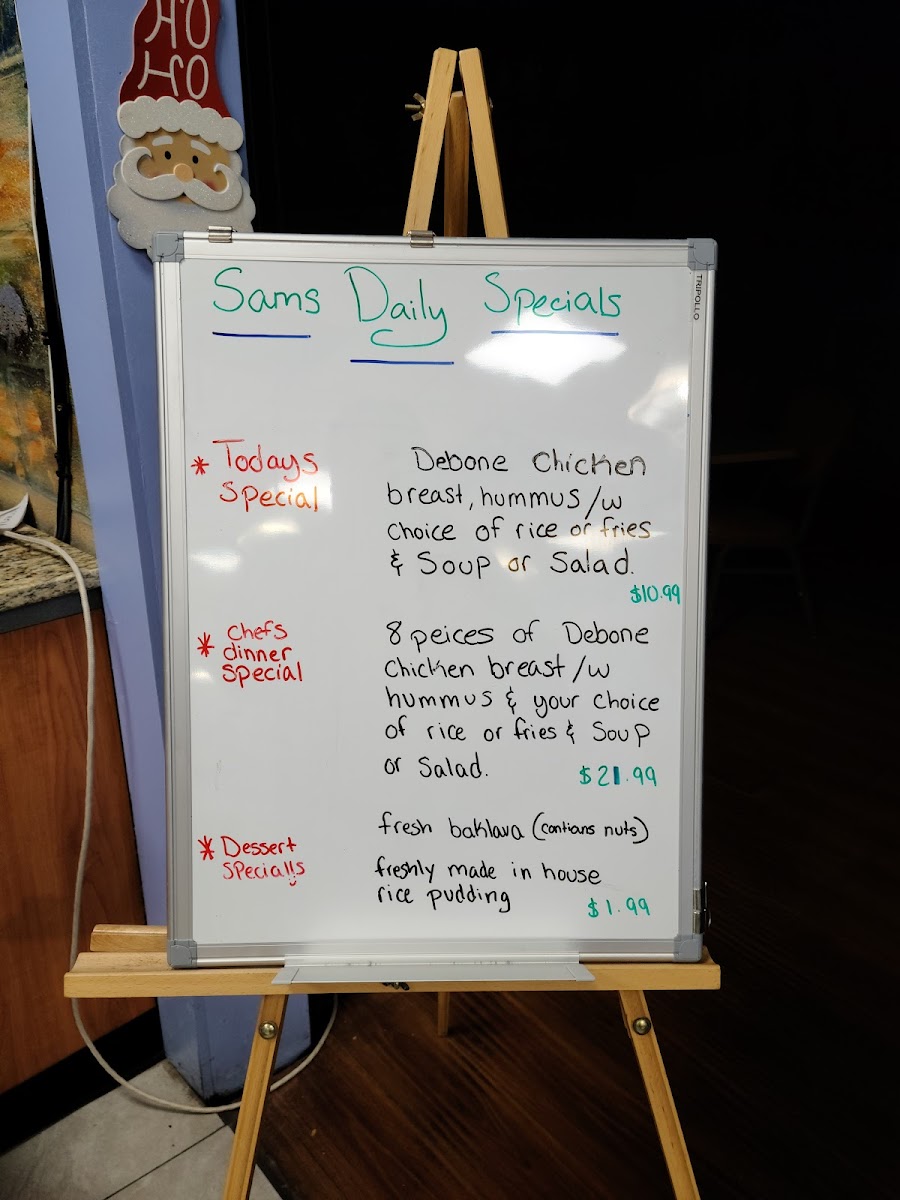 HO
HO
Sams Daily Specials
TRIPOLLO
* Todays
Special
Debone Chicken
breast, hummus /w
Choice of rice or fries
& Soup or Salad.
$10.99
* Chefs
dinner
special
8 peices of Debone
Chicken breast /w
hummus & your choice
of rice or fries & Soup
or Salad.
$21.99
* Dessert
Specialls
fresh baklava (contians nuts)
freshly made in house
rice pudding
$1.99